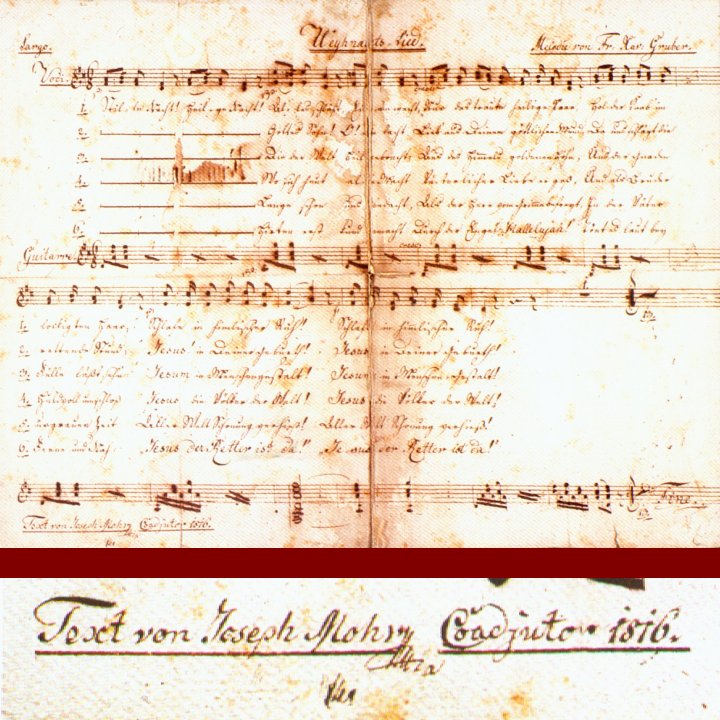 Weyhnachts-Lied.
Largo. Melodie von Fr. Xav. Gruber.
Voci.
1. Stille Nacht! Heilige Nacht! Alles schläft. Einsam wacht Nur das traute heilige Paar. Holder Knab im
2. Gottes Sohn! O! wie lacht Lieb' aus Deinem göttlichen Mund, Da uns schlägt die
3. Die der Welt Heil gebracht, Aus des Himmels goldenen Höhn, Aus der Gnaden
4. Wo sich heut alle Macht Väterlicher Liebe ergoß, Und als Bruder
5. Lange schon Uns bedacht, Als der Herr vom Grimme befreyt, In der Väter
6. Hirten erst Kund gemacht Durch der Engel Hallelujah! Tönt es laut bey
Guitarre
1. lockigten Haar; Schlafe in himmlischer Ruh! Schlafe in himmlischer Ruh!
2. rettende Stund. Jesus! in Deiner Geburth! Jesus in Deiner Geburth!
3. Fülle läßt schau'n Jesum in Menschengestalt! Jesum in Menschengestalt!
4. Huldvoll umschloß Jesus die Völker der Welt! Jesus die Völker der Welt!
5. urgrauer Zeit Aller Welt Schonung verhieß! Aller Welt Schonung verhieß!
6. Ferne und Nah: "Jesus der Retter ist da!" "Jesus der Retter ist da!"
Fine.
Text von Joseph Mohr Coadjutor 1816.
Text von Joseph Mohr Coadjutor 1816.